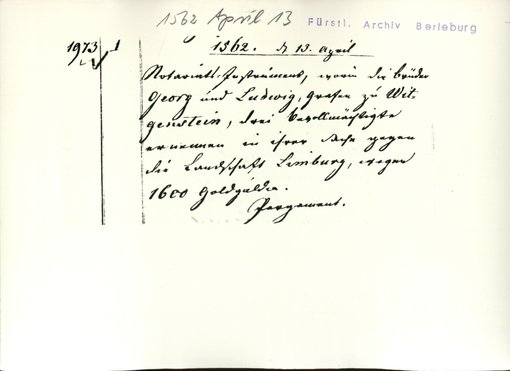 1562 April 13
Fürstl. Archiv Berleburg
1973
1562. d 13. April
Notariats-Instrument, worin die brüder
Georg und Ludwig, Grafen zu Wit-
genstein, drei Bevollmächtigte
ernennen in ihrer Sache gegen
die Landschaft Limburg, wegen
1600 Goldgulden.
Pergament.